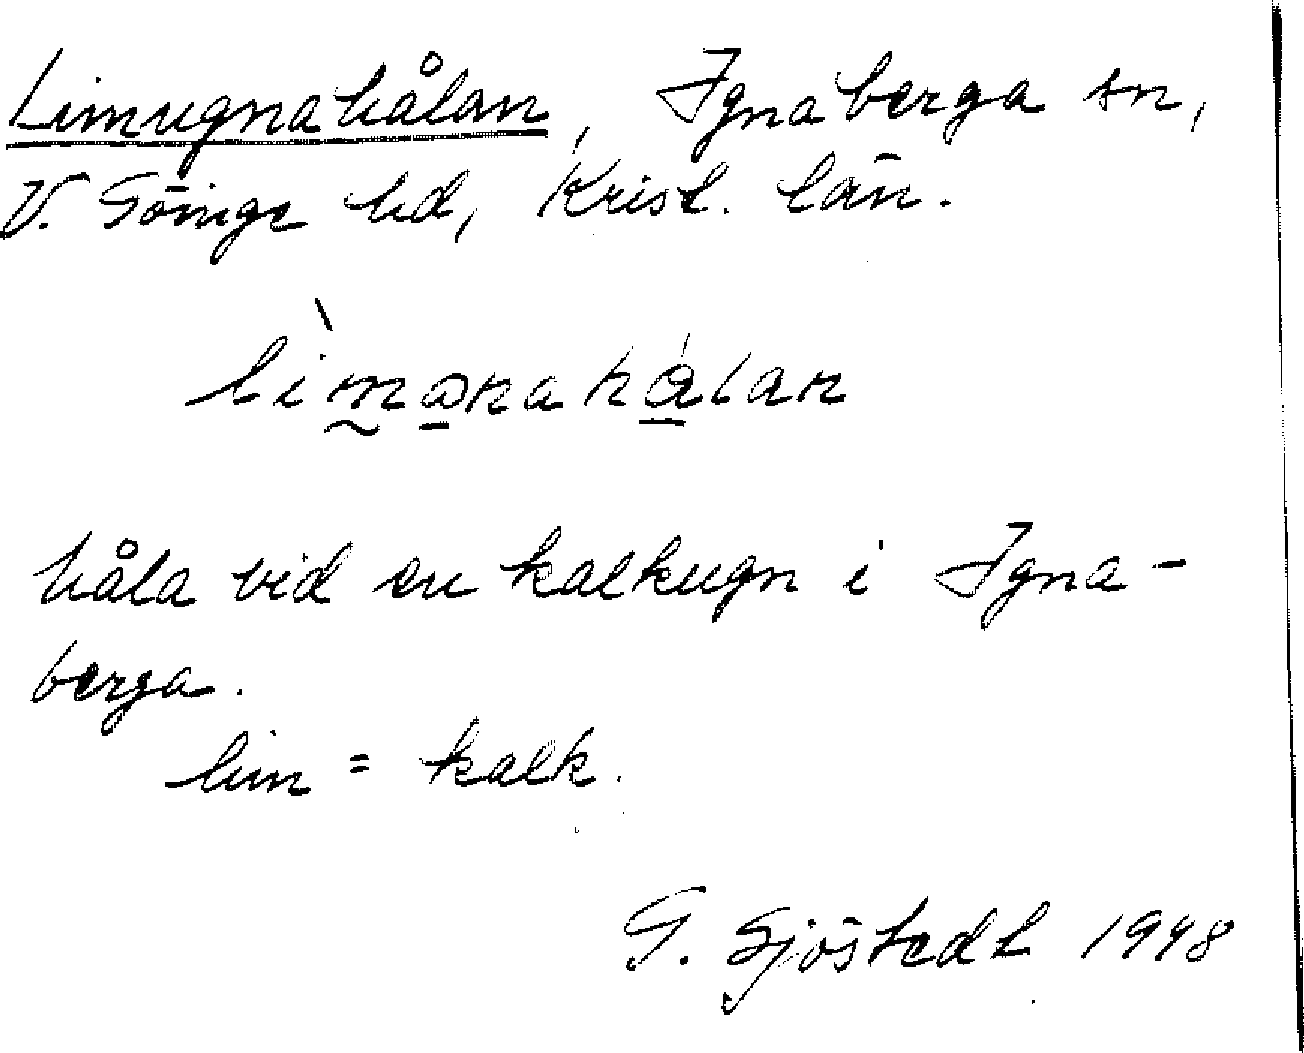 Limugnahålan, Ignaberga sn,
V. Göinge hd, Krist. län.
håla vid en kalkugn i Igna-
berga.
lim = kalk.
G. Sjöstedt 1948